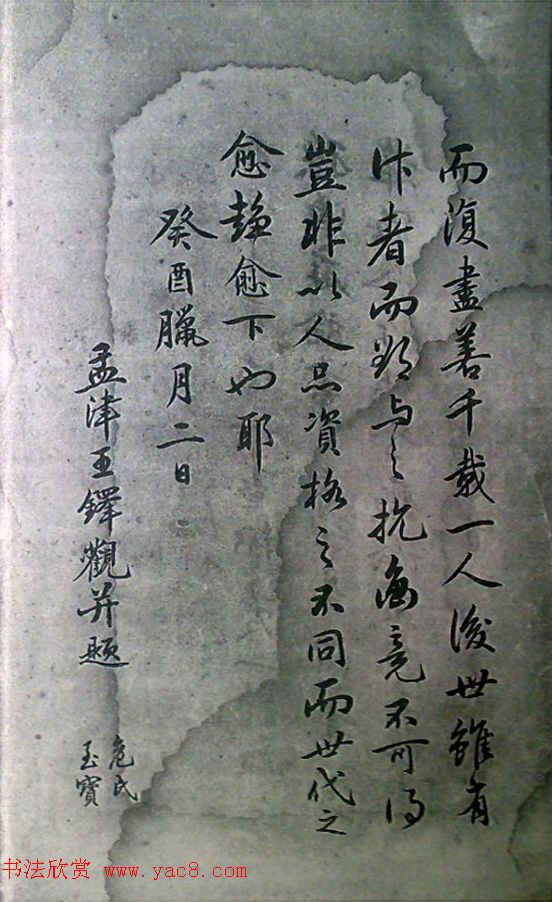 而復盡善千載一人後世雖有
作者而欲与之抗衡竟不可得
豈非以人品資格之不同而世代之
愈趨愈下也耶
癸酉臘月二日
孟津王鐸觀并題
氏
至寶
书法欣赏 www.yac8.com